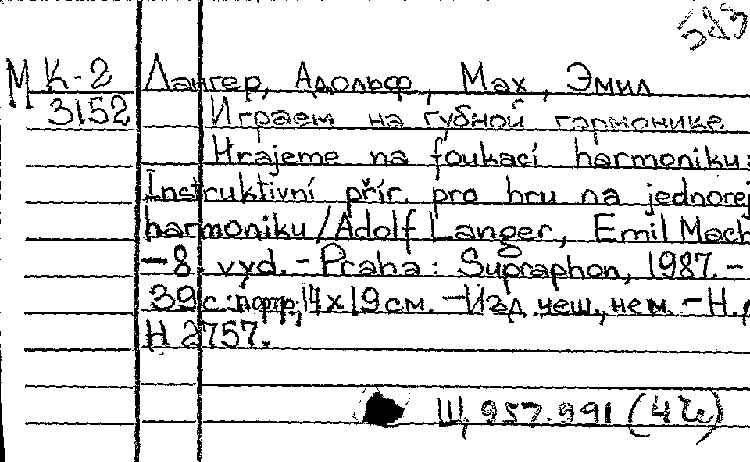 583
М К-2 Лангер, Адольф, Мах, Эмил
3152 Играем на губной гармонике
Hrajeme na foukací harmoniku:
Instruktivní přír. pro hru na jednorej
harmoniku / Adolf Langer, Emil Mach
– 8. vyd. – Praha : Supraphon, 1987. –
39 с.: портр, 14 x 19 см. – Изд. чеш., нем. – Н.
Н 2757.
Щ 957.991 (4Че)